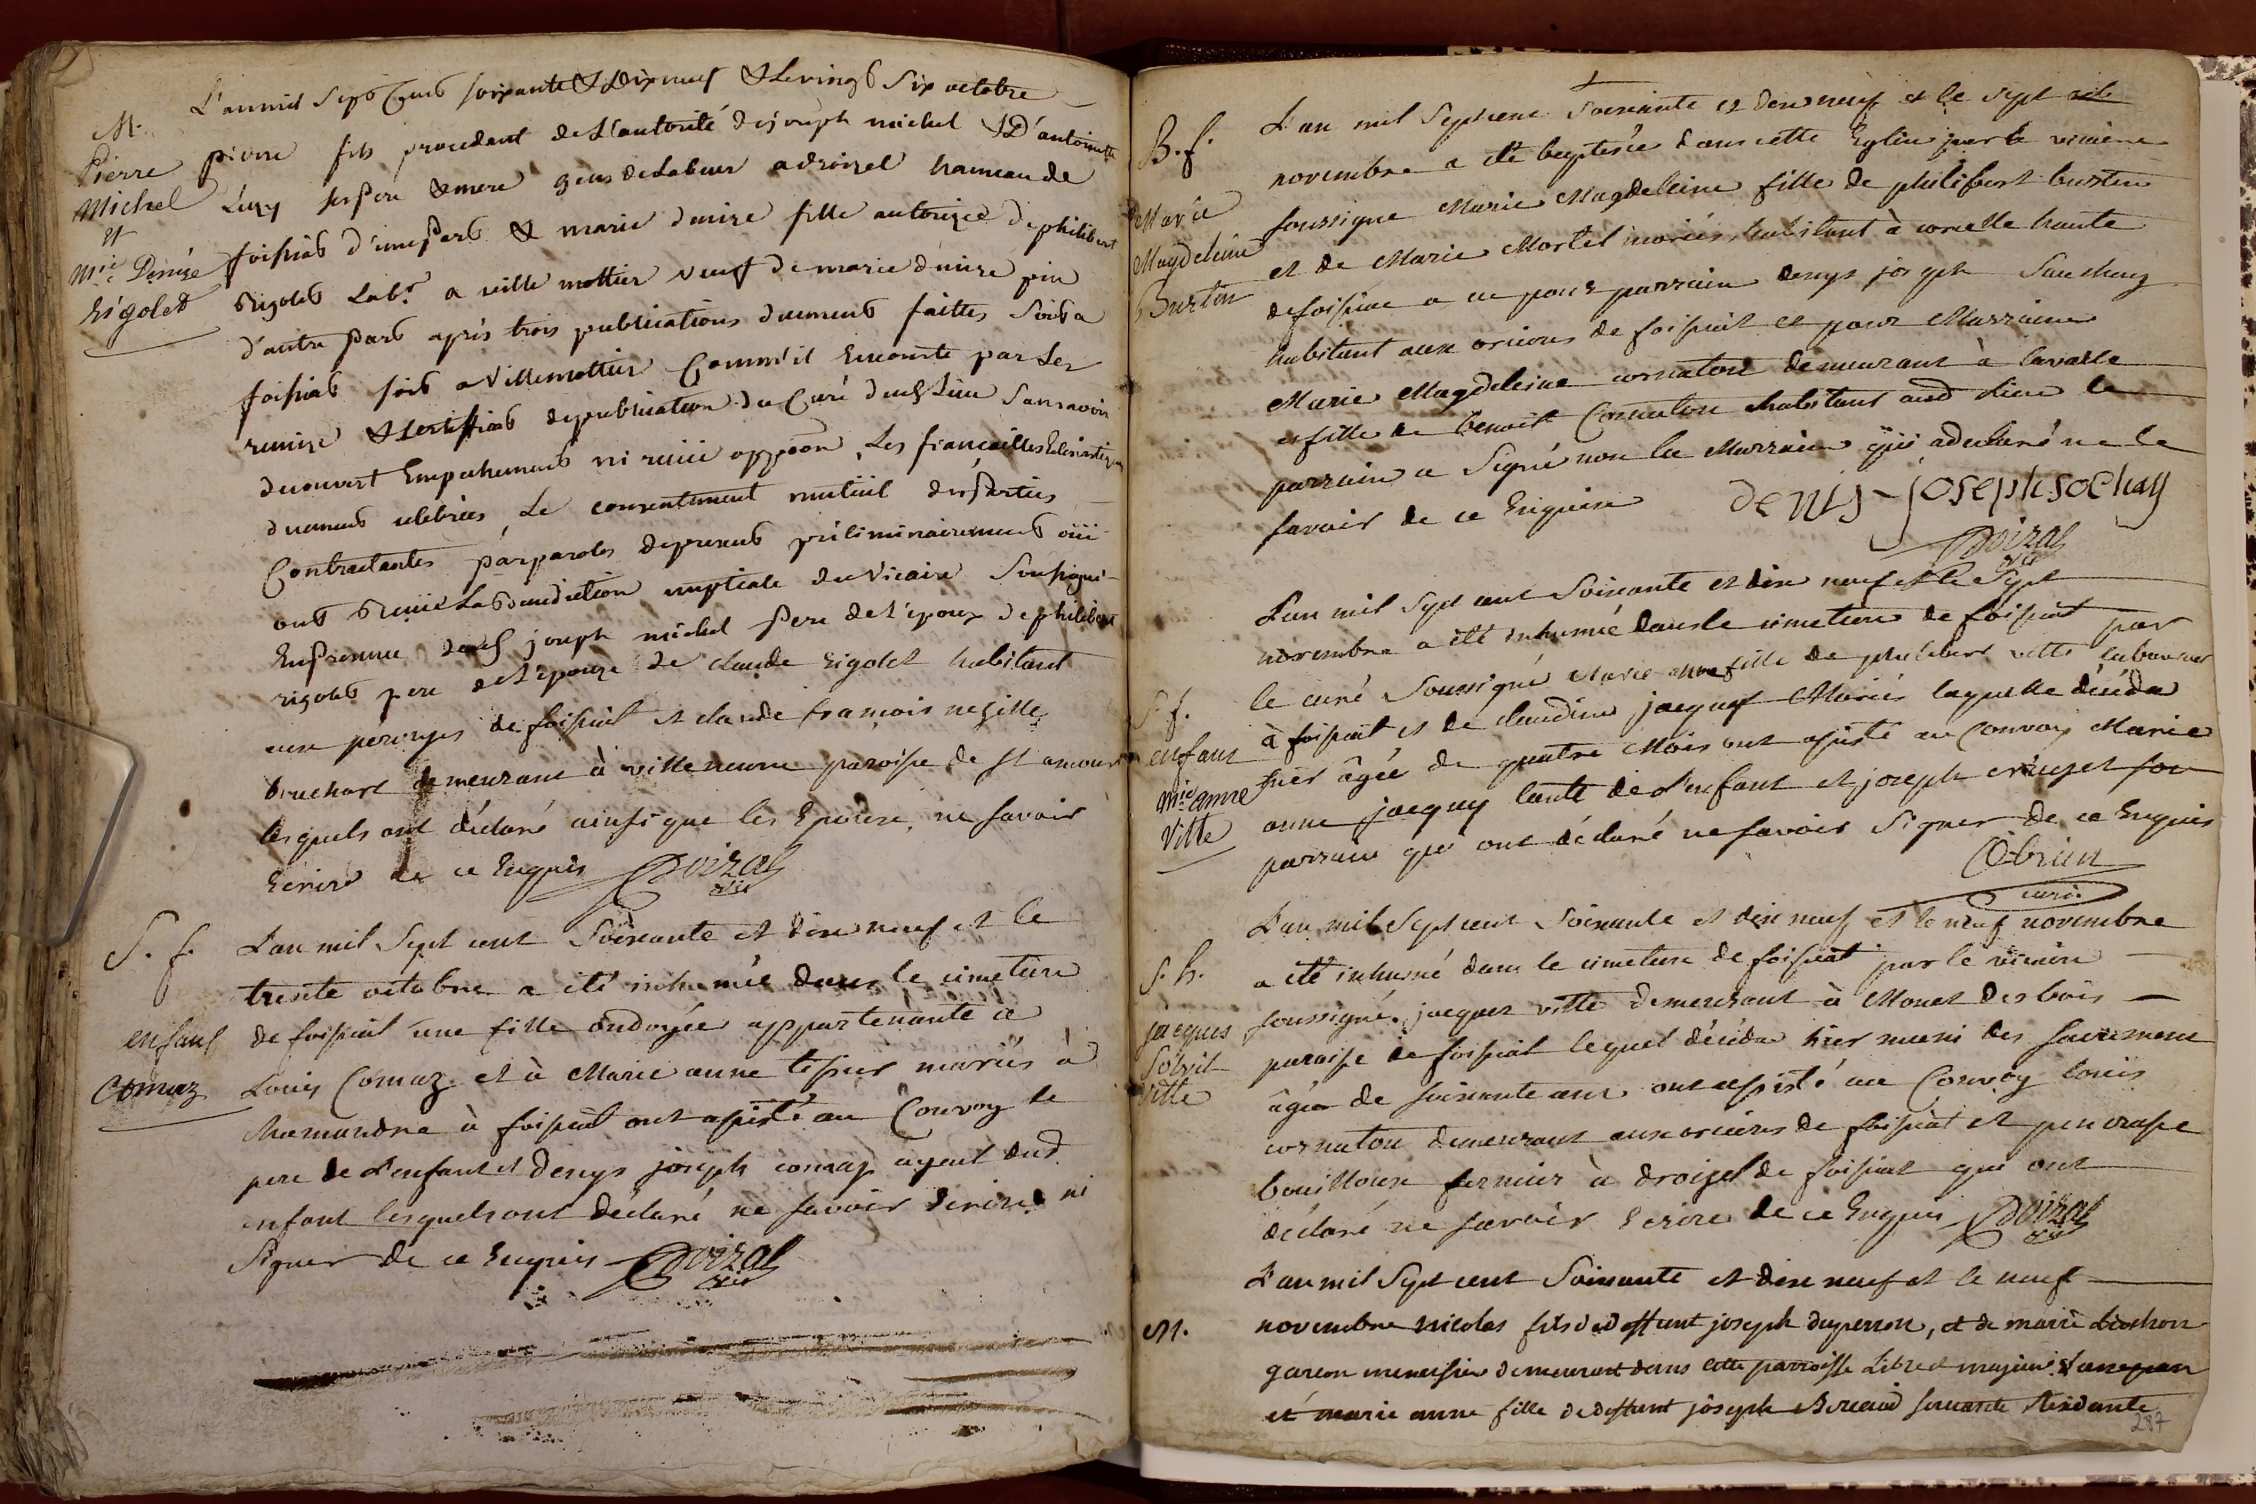 M.
Pierre
Michel
et
Mie Denize
Rigolet
L'an mil Sept Cents soixante & Dix neuf & Le vingt Six octobre
pierre fils procedant de L'autorité de joseph michel & D'antoinette
Luzy ses Pere & mere gens de Labeur a droizel hameau de
foissiat d'une Part & marie denize fille autorizée de philibert
Rigolet Labr a ville mottier veuf de marie denize
d'autre Part après trois publications duement faittes Soit a
foissiat soit a Villemottier Comm'il Enconste par Les
remise & Certifficat de publication du Curé dud Lieu Sans avoir
decouvert Empechement ni reçüe oppoõn, Les fiançailles
duement celebrées, Le consentement mutüel des Parties
Contractantes par paroles de present préliminairement oüi
ont Reçüe La Benediction nuptiale du Vicaire Sousigné
En Presence dud joseph michel Pere de L'epoux de philibert
rigolet pere de L'Epouze de claude Rigolet habitant
aux perouzes de foissiat et claude francois
bruchart demeurant à villeneuve paroisse de st amour
lesquels ont déclaré ainsi que les Epouse, ne savoir
Ecrire de ce Enquis Doizal
vic
S. f.
enfant
Comaz
L'an mil Sept cent Soixante et dix neuf et le
trente octobre a été inhumée dans le cimetiere
de foissiat une fille ondoyée appartenante à
Louis Comaz et à Marie anne tissier mariés à
Chamandre à foissiat ont assisté au Convoy le
pere de L'enfant et Denys joseph comaz ayeul dud
enfant lesquels ont déclaré ne savoir Ecrire ni
Signer de ce Enquis Doizal
vic
B. f.
Marie
Magdeleine
Burtin
L'an mil Sept cent Soixante et dix neuf et le sept
novembre a été baptisée dans cette Eglise par le vicaire
soussigné Marie Magdeleine fille de philibert burtin
et de Marie Martel mariés, habitant à cornelle haute
de foissiat a eu pour parrain denys joseph Sauchay
habitant aux oriours de foissiat et pour Marraine
Marie Magdeleine cornaton demeurant à lavalle
et fille de benoit Cornaton habitant aud Lieu le
parrain a Signé non la Marraine qui a déclaré ne le
savoir de ce Enquise denis-joseph sochay
Doizal
vic
S. f.
enfant
Mie anne
Vitte
L'an mil Sept cent Soixante et dix neuf et le Sept
novembre a été inhumée dans le cimetiere de foissiat par
le curé Soussigné Marie anne fille de philibert vitte laboureur
à foissiat et de claudine jacquy Mariés laquelle décéda
hier âgée de quatre Mois ont assisté au Convoy Marie
anne jacquy tante de L'enfant et joseph son
parrain qui ont déclaré ne savoir Signer de ce Enquis
Obrien
curé
S. h.
jacques
vitte
L'an mil Sept cent Soixante et dix neuf et le neuf novembre
a été inhumé dans le cimetiere de foissiat par le vicaire
soussigné, jacques vitte demeurant à Monet des bois
paroisse de foissiat lequel décéda hier muni des sacremens
âgé de soixante ans ont assisté au Convoy louis
cornaton demeurant aux oriours de foissiat et
bouilloux fermier à droizel de foissiat qui ont
déclaré ne savoir Ecrire de ce Enquis Doizal
vic
M.
L'an mil Sept cent Soixante et dix neuf et le neuf
novembre nicolas fils de deffunt joseph duperron, et de marie
garcon menuisier demeurant dans cette parroisse Libre et majeur
et marie anne fille de deffunt joseph servante Résidante
287